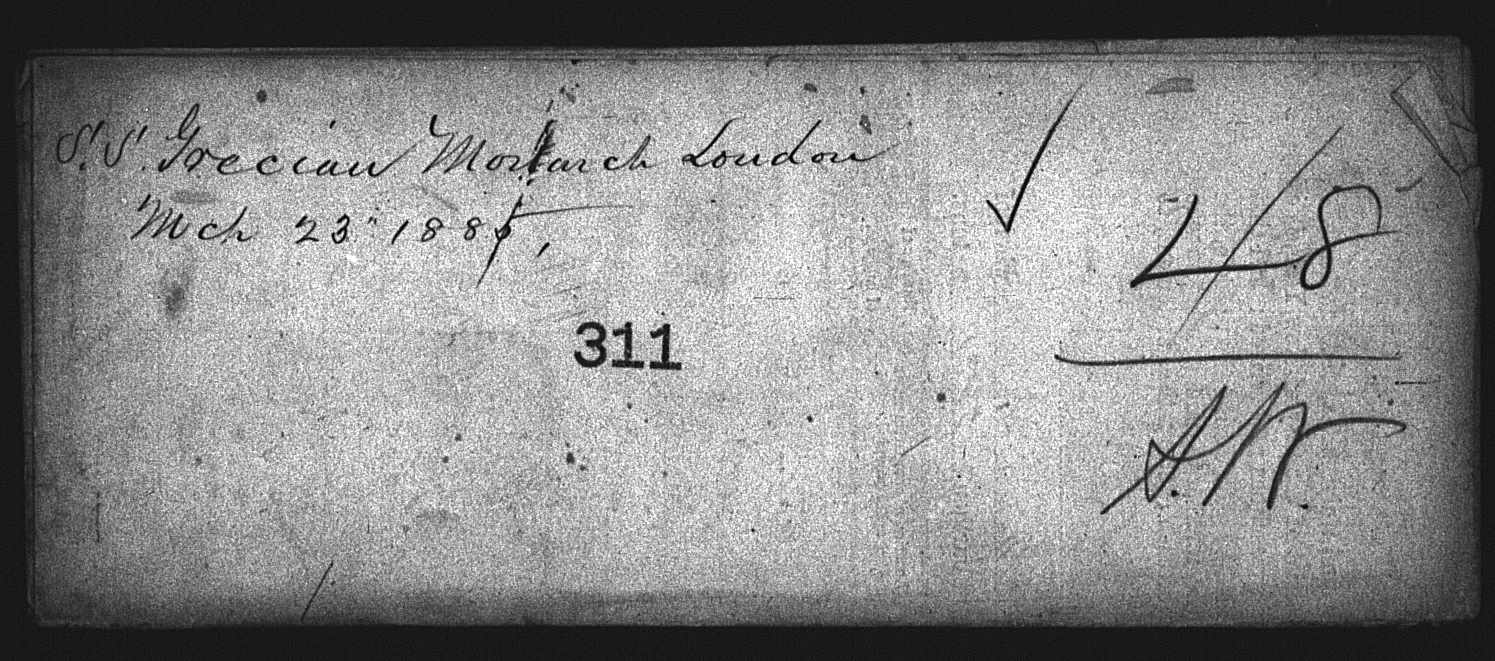 S.S. Grecian Monarch London
Mch 23" 1885,
311